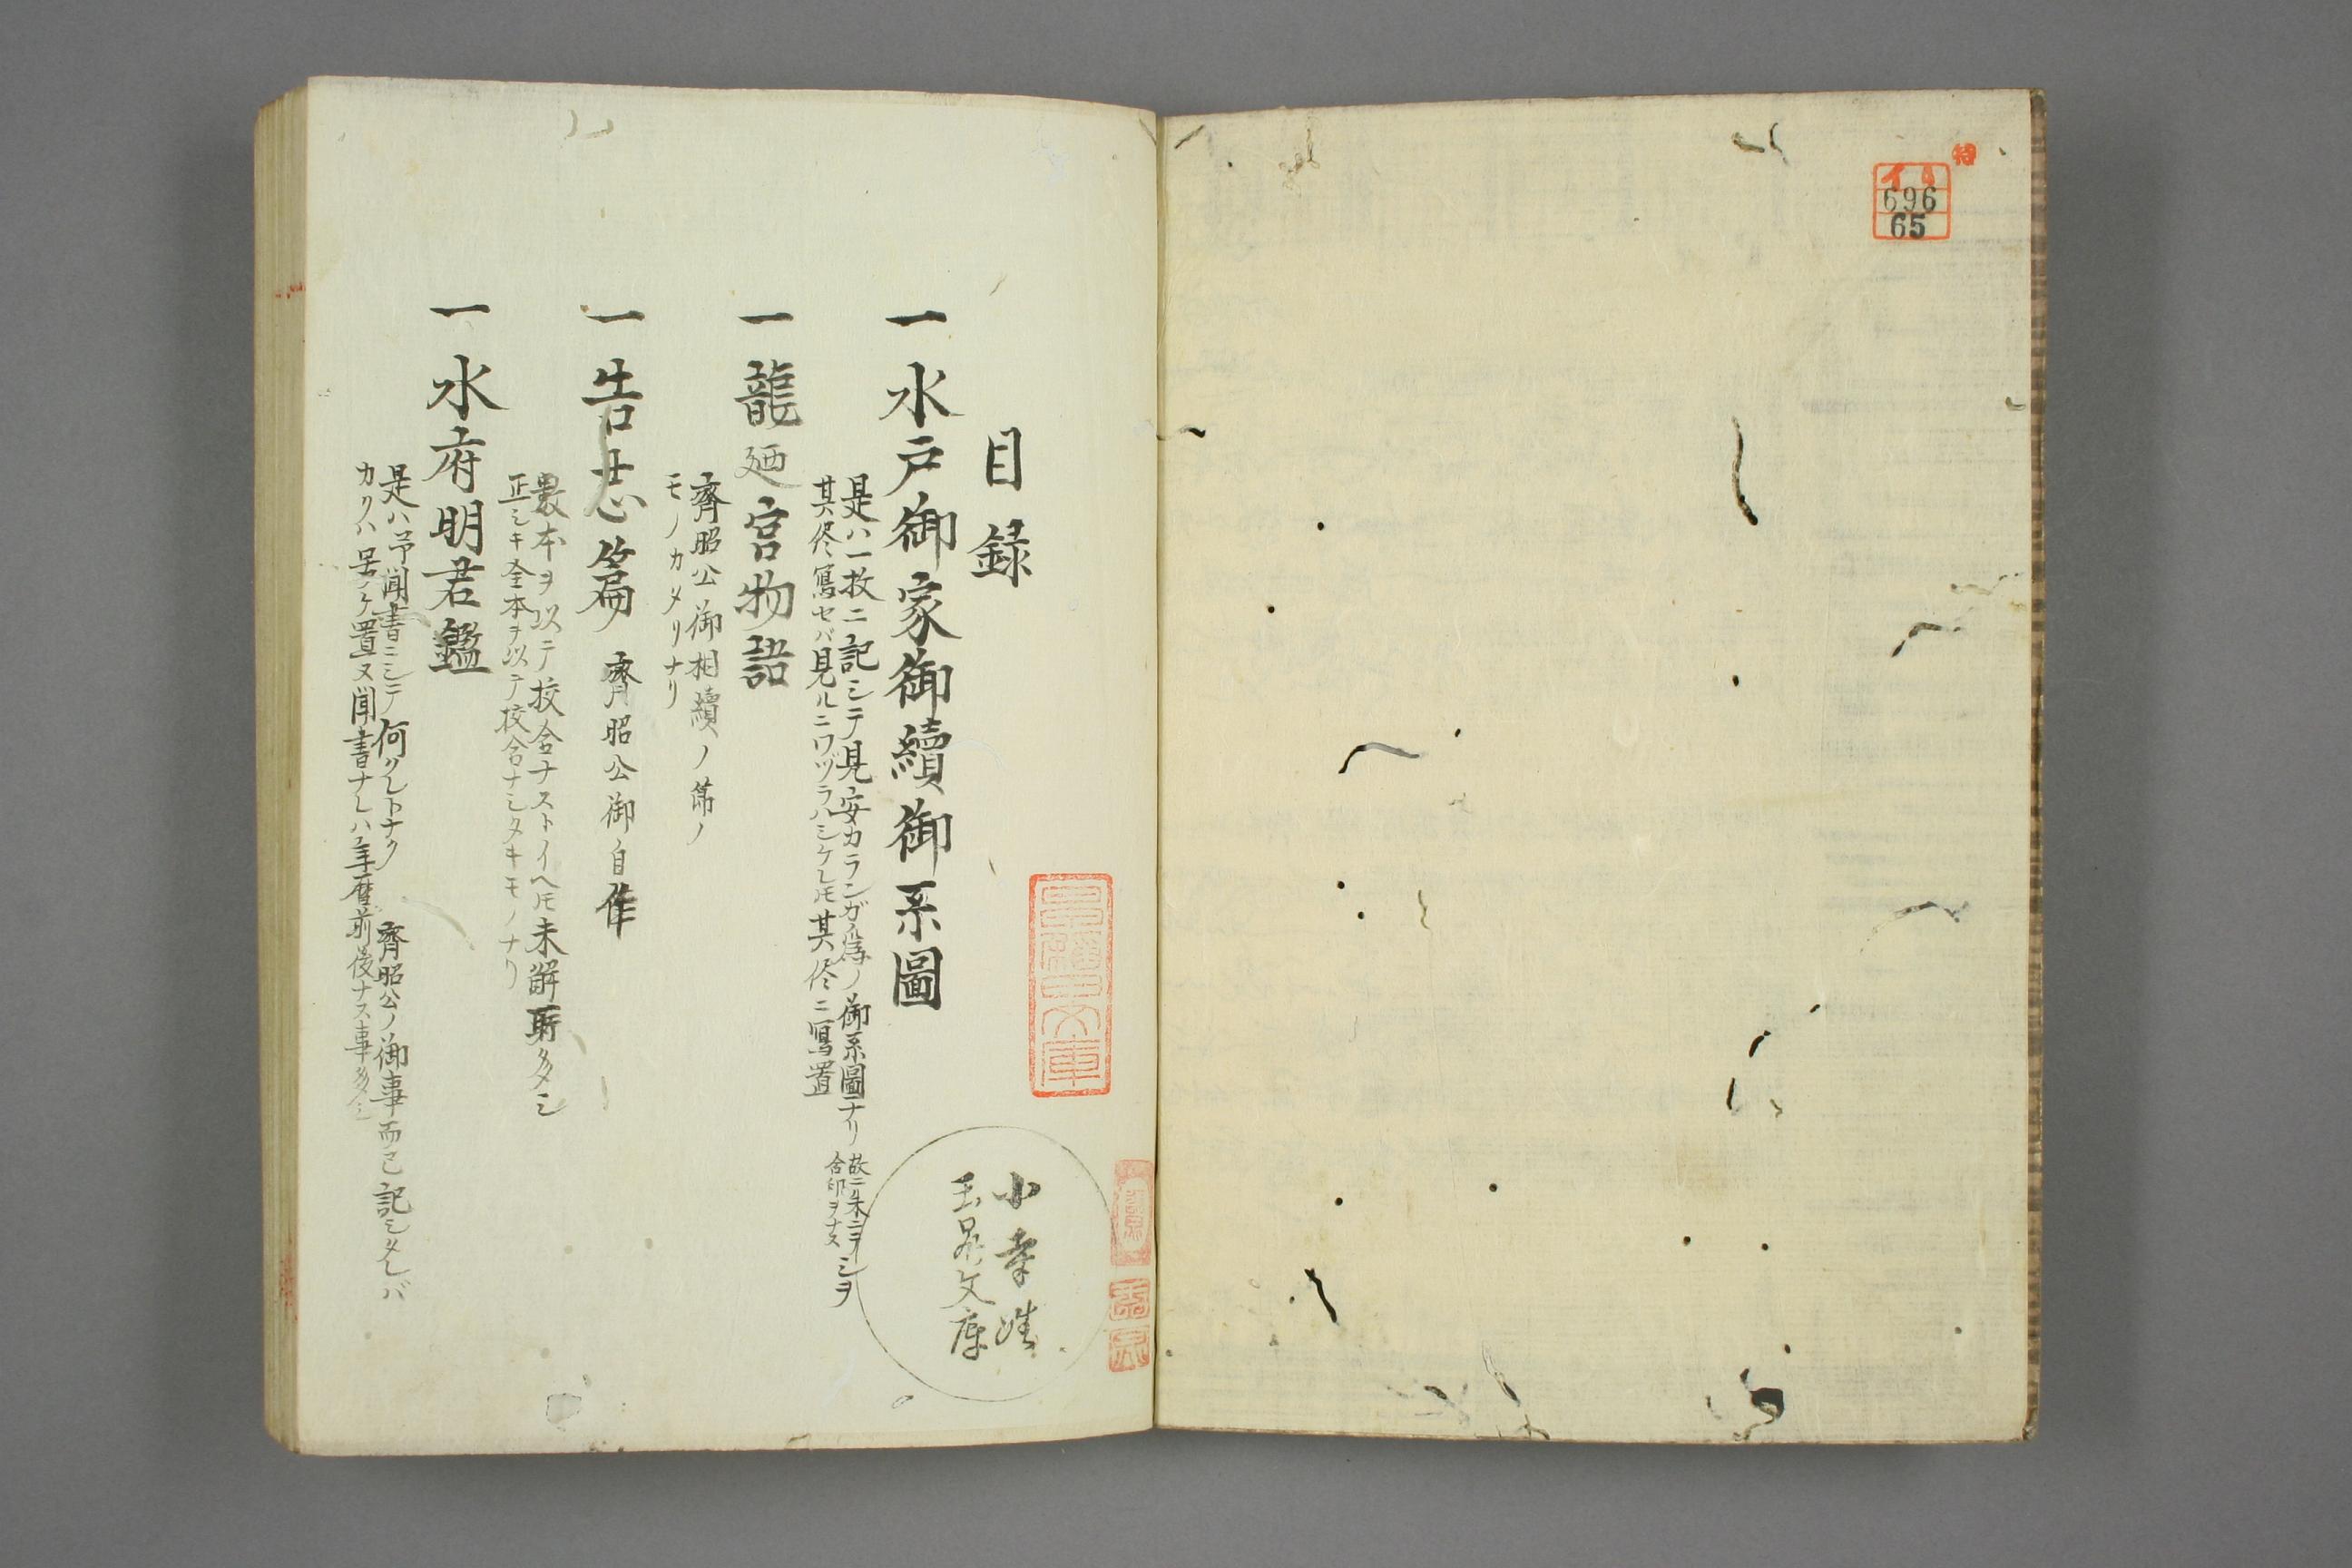 特
イ4
696
65
目録
一水戸御家御續御系圖
是ハ一枚ニ記シテ見安カランガ為ノ御系圖ナリ
故ニ朱ニテシヲ
合印ヲナス
其侭寫セバ見ルニワヅラハシケレ𪜈其侭ニ寫置
一龍廼宮物語
齊昭公御相續ノ節ノ
モノカタリナリ
一告志篇 齊昭公御自作
異本ヲ以テ挍合ナストイヘ𪜈未解所多シ
正シキ全本ヲ以テ挍合ナシタキモノナリ
一水府明君鑑
是ハ予聞書ニシテ何クレトナク 齊昭公ノ御事而已記シタレバ
カクハ号ケ置又聞書ナレハ年暦前後ナス事多シ
玉晁文庫